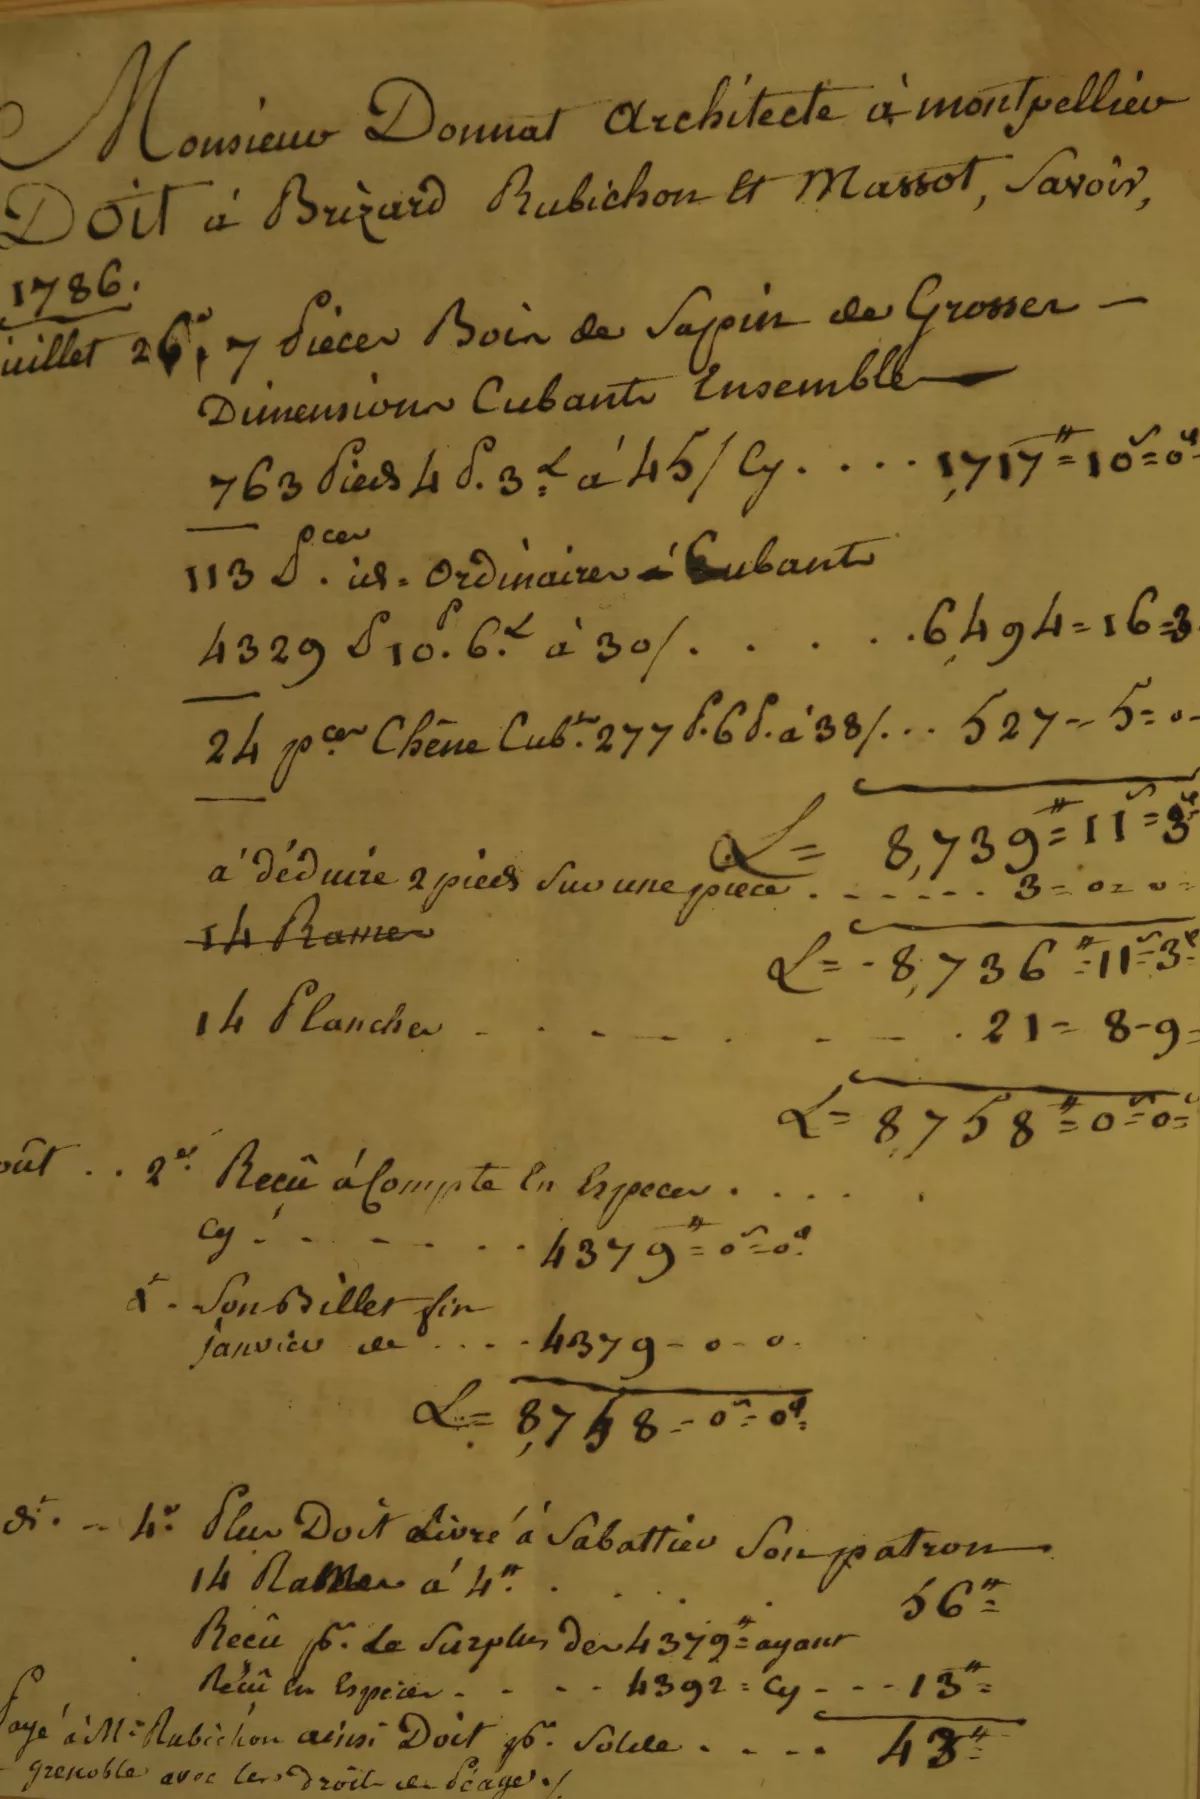 Monsieur Donnat Architecte à montpellier
Doit à Brizard Rubichon Et Massot, Savoir,
1786.
juillet 26e, 7 Pièces Bois de Sapin de Grosses —
Dimensions Cubants Ensemble
763 Pieds 4 P. 3 L à 45/ Cy. . . . . 1,717# = 10s = 0d
113 P.ces id. Ordinaires Cubants
4329 P 10 P. 6. L à 30/. . . . . 6,494 = 16 = 3
24 p.ces Chêne Cub.ts 277 P. 6 P. à 38/. . . 527 - 5 = 0 -
L = 8,739# = 11s = 3d
à déduire 2 pieds sur une pièce . . . . . . 3 = 0 = 0 =
14 Rames
L = 8,736# = 11s = 3d
14 Planches . . . . . . . 21 = 8 - 9 =
L = 8,758# = 0s = 0=
oût . . 2e. Reçû à Compte En Especes . . . . .
Cy . . . . . . 4379# = 0s = 0d.
dt. Son Billet fin
janvier de . . . . 4379 - 0 - 0.
L = 8,758 - 0s = 0d
dt. - 4e. Plus Doit Livré à Sabattier Son patron
14 Rames à 4#. . . . . 56# =
Reçû pr. Le Surplus des 4379# = ayant
Reçû En Especes . . . . 4392 = Cy - - - 13# =
Payé à Mr Rubichon ainsi Doit pr. Solde . . . . 43# =
grenoble avec les droits de Péage ./